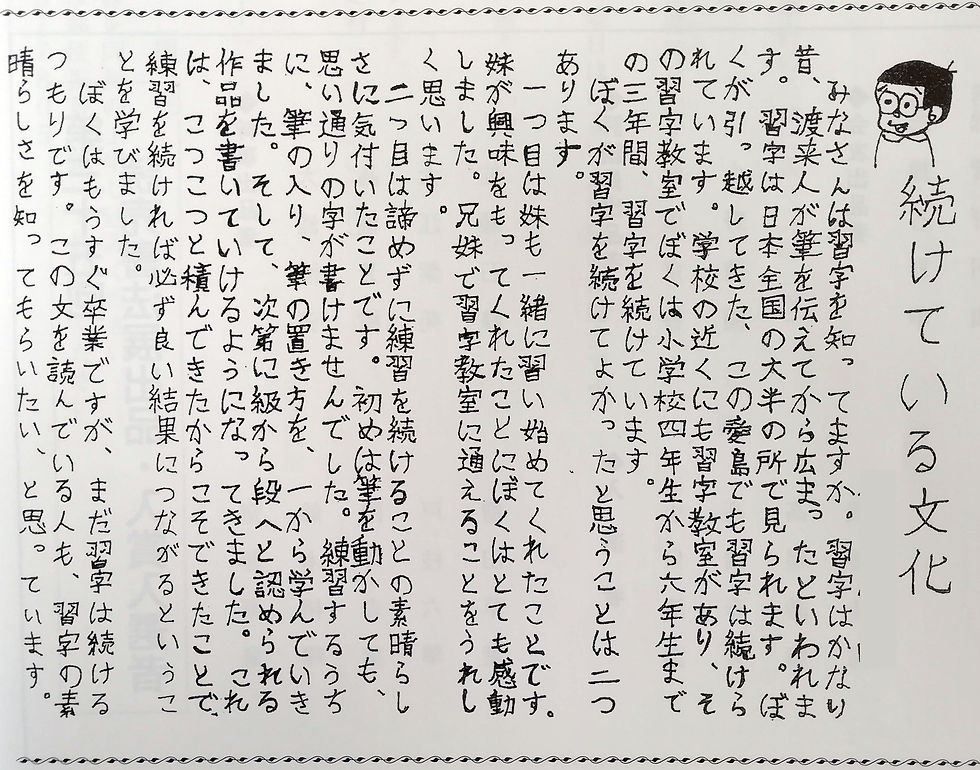 続けている文化
みなさんは習字を知ってますか。習字はかなり
昔、渡来人が筆を伝えてから広まったといわれま
す。習字は日本全国の大半の所で見られます。ぼ
くが引っ越してきた、この愛島でも習字は続けら
れています。学校の近くにも習字教室があり、そ
の習字教室でぼくは小学校四年生から六年生まで
の三年間、習字を続けています。
ぼくが習字を続けてよかったと思うことは二つ
あります。
一つ目は妹も一緒に習い始めてくれたことです。
妹が興味をもってくれたことにぼくはとても感動
しました。兄妹で習字教室に通えることをうれし
く思います。
二つ目は諦めずに練習を続けることの素晴らし
さに気付いたことです。初めは筆を動かしても、
思い通りの字が書けませんでした。練習するうち
に、筆の入り、筆の置き方を、一から学んでいき
ました。そして、次第に級から段へと認められる
作品を書いていけるようになってきました。これ
は、こつこつと積んできたからこそできたことで、
練習を続ければ必ず良い結果につながるというこ
とを学びました。
ぼくはもうすぐ卒業ですが、まだ習字は続ける
つもりです。この文を読んでいる人も、習字の素
晴らしさを知ってもらいたい、と思っています。